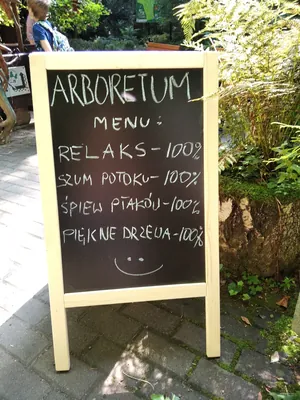 ARBORETUM
MENU:
RELAKS-100%
SZUM POTOKU-100%
ŚPIEW PTAKÓW-100%
PIĘKNE DRZEWA-100%